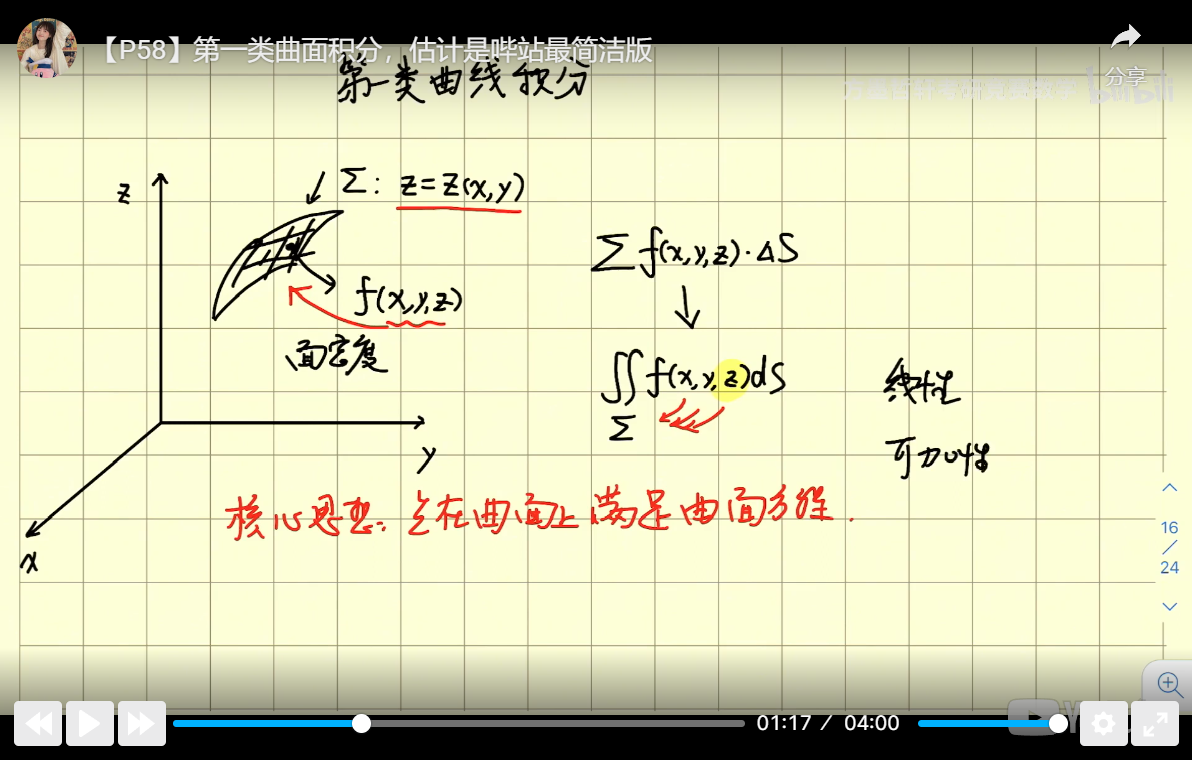 【P58】第一类曲面积分，估计是哔站最简洁版
分享
bilibili
第一类曲线积分
z
Σ: z=z(x,y)
f(x,y,z)
面密度
y
x
Σf(x,y,z)·ΔS
↓
∬f(x,y,z)dS
Σ
线性
可加性
核心思想: 点在曲面上满足曲面方程.
16
/
24
01:17 / 04:00